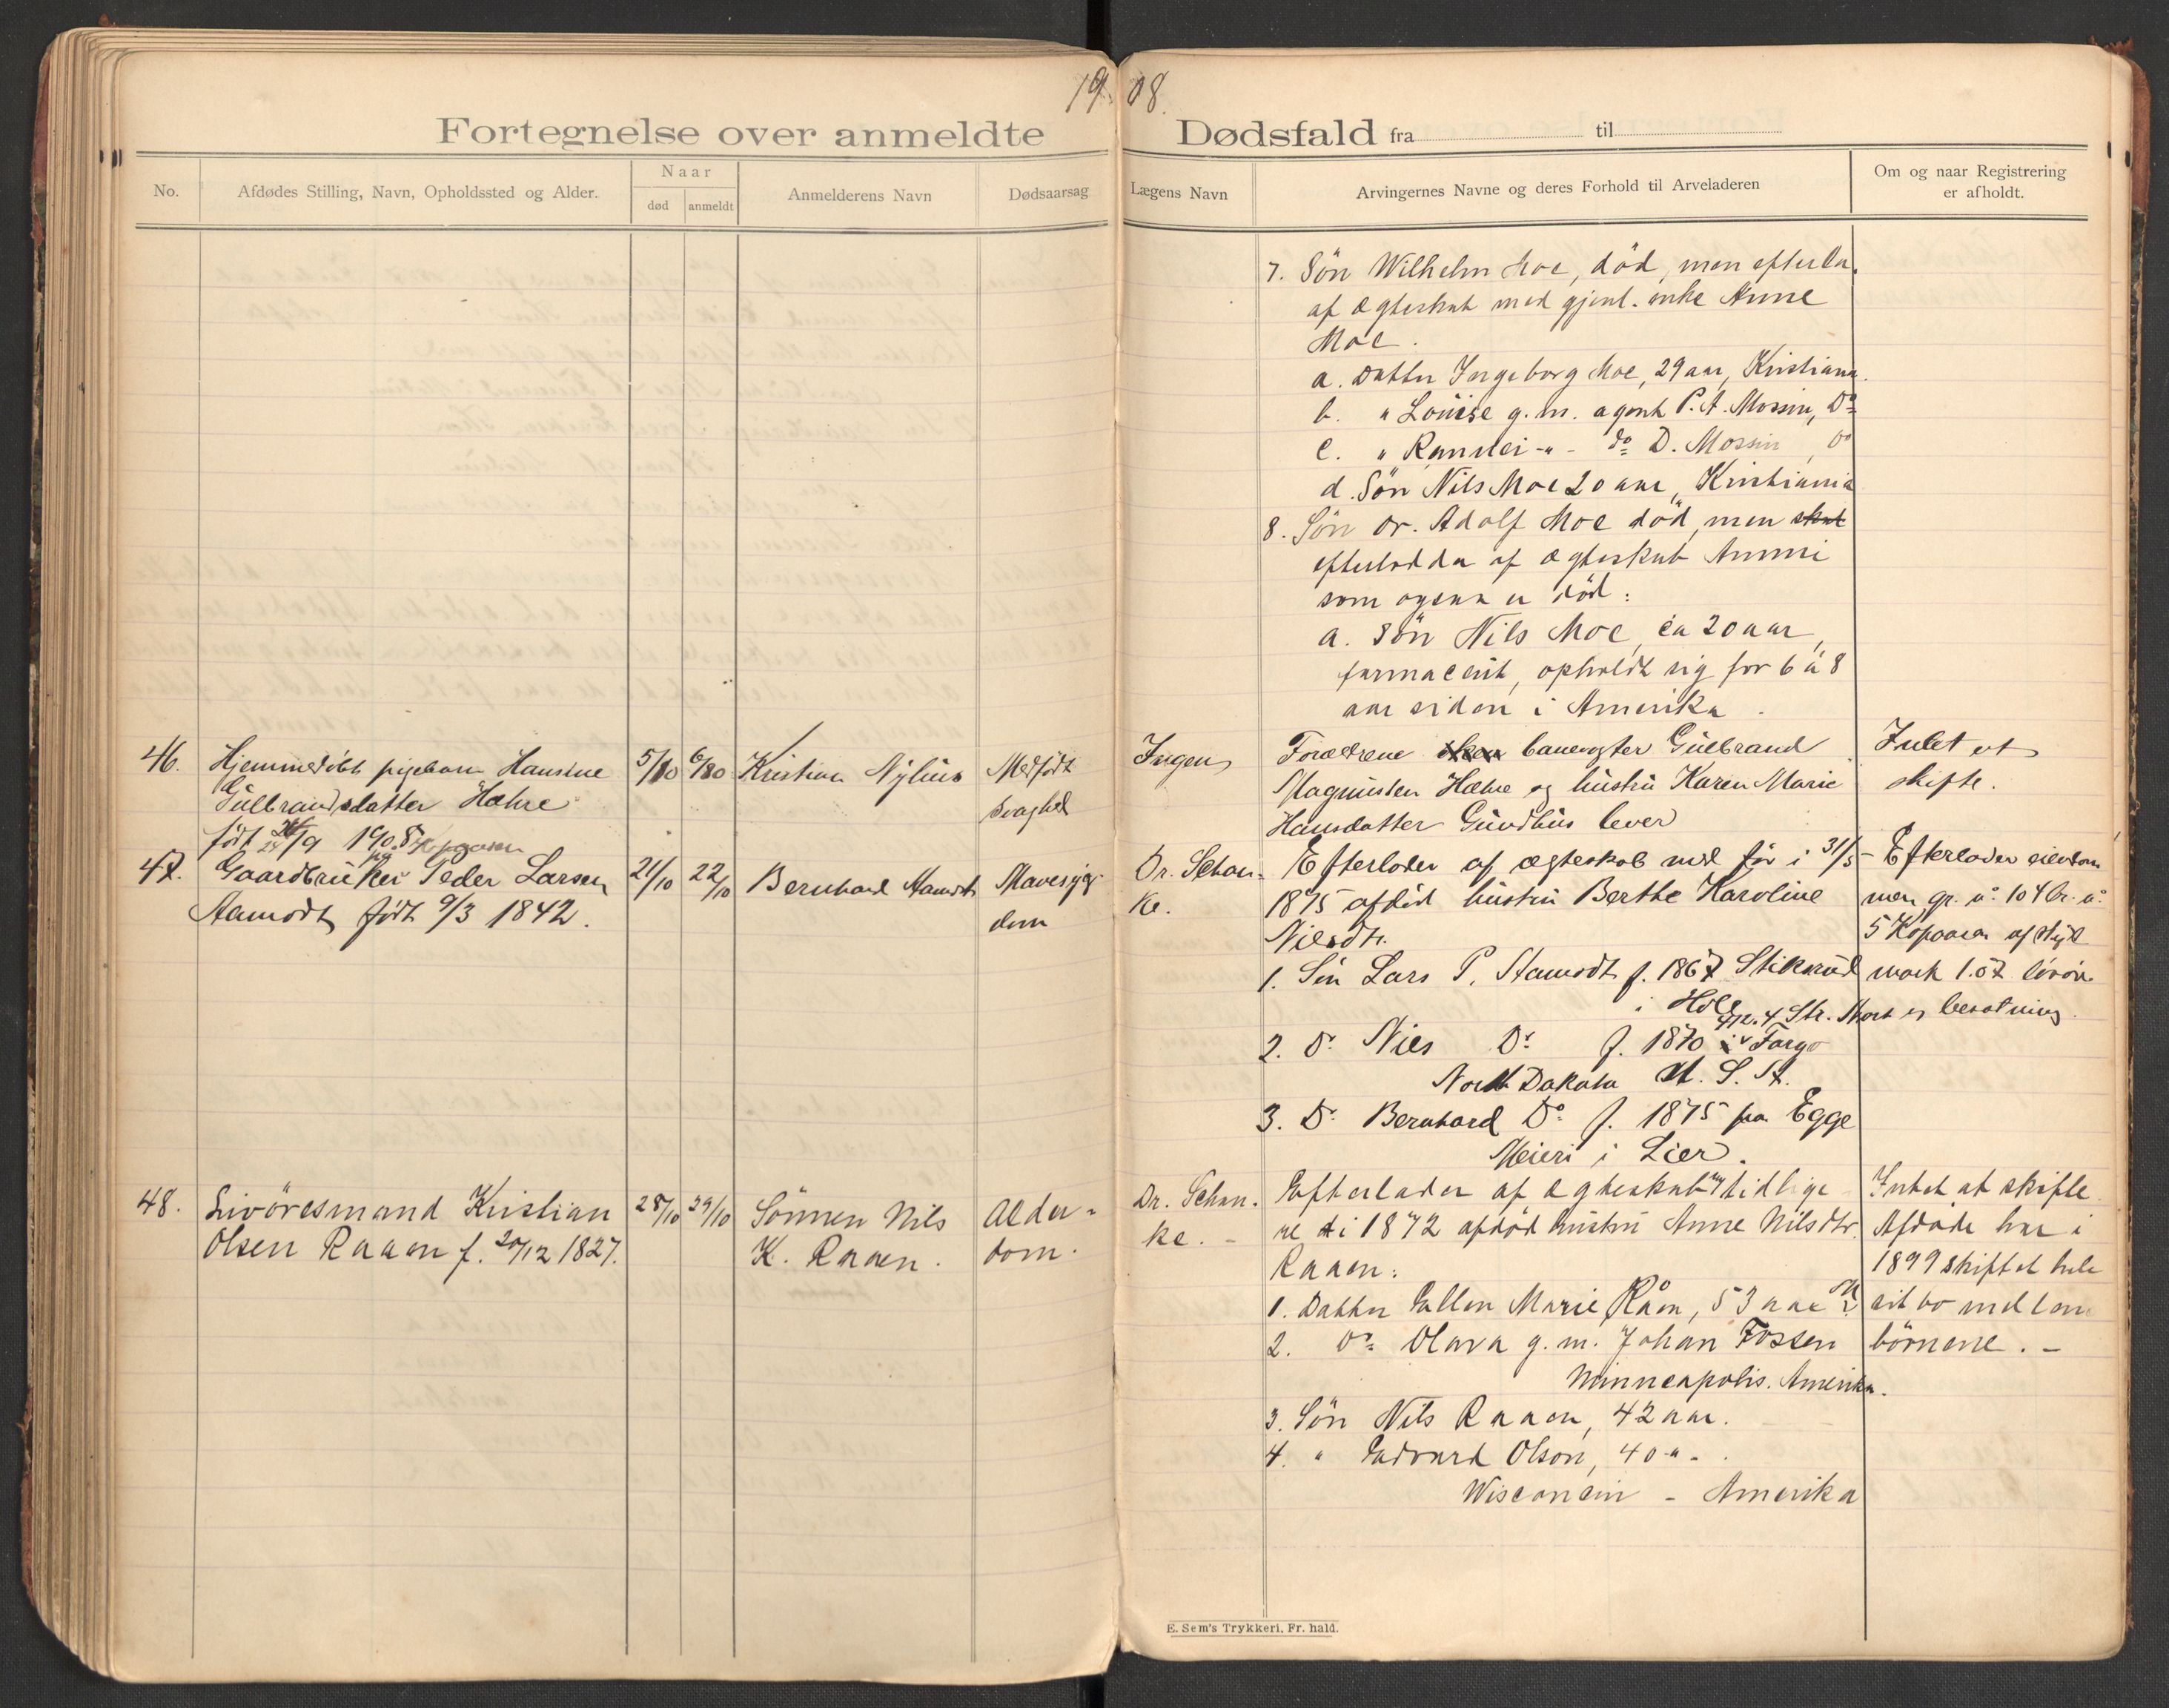 1908.
Fortegnelse over anmeldte Dødsfald fra til
No.
Afdødes Stilling, Navn, Opholdssted og Alder.
Naar
død
anmeldt
Anmelderens Navn
Dødsaarsag
Lægens Navn
Arvingernes Navne og deres Forhold til Arveladeren
Om og naar Registrering
er afholdt.
7. Søn Wilhelm Moe, död, men efterla.
af ægteskab med gjenl. enke Anne
Moe.
a. Datter Ingeborg Moe, 29 aar, Kristiania.
b. " Louise g. m. agent P. A. Mossin, Do
c. " Ranvei -"- do D. Mossin, Do
d. Søn Nils Moe 20 aar, Kristiania
8. Søn Dr. Adolf Moe död, men
efterladder af ægteskab Anmi
som ogsaa er död:
a. Søn Nils Moe, ca 20 aar,
farmaceut, opholdt sig for 6 à 8
aar siden i Amerika.
46.
Hjemmedöbt pigebarn Hansine
Gulbrandsdatter Hæhre
født /9 1908
5/10
6/10
Kristian Nylius
Medfødt
svaghed
Ingen
Forældrene banevogter Gulbrand
Magnussen Hæhre og hustru Karen Marie
Hansdatter Gundhus lever
Intet at
skifte.
47.
Gaardbruker Peder Larsen
Aamodt født 9/3 1842.
21/10
22/10
Bernhard Aamodt
Mavesyg-
dom
Dr. Schan-
ke.
Efterlader af ægteskab med før i 31/5
1875 afdöd hustru Berthe Karoline
Nilsdtr.
1. Søn Lars P. Aamodt f. 1867 Stiksrud
i Hole
2. Do Niels Do f. 1870 i Fargo
North Dakota U. S. A.
3. Do Bernhard Do f. 1875 paa Egge
Meieri i Lier.
- Efterlader eiendom
men gr. no 104 br. no
5 Kopaasen af skyld
mark 1.07 løsøre
besætning.
48.
Livöresmand Kristian
Olsen Raaen f. 20/12 1827.
28/10
29/10
Sönnen Nils
K. Raaen.
Alder-
dom.
Dr. Schan-
ke. -
Efterlader af ægteskab m tidlige
re i 1872 afdöd hustru Anne Nilsdtr.
Raaen:
1. Datter Ellen Marie Råen, 53 aar
2. Do Olava g. m. Johan Fossen
Minneapolis. Amerika.
3. Søn Nils Raaen, 42 aar.
4. " Edvard Olson, 40 -"-.
Wisconsin - Amerika
Intet at skifte.
Afdöde har i
1899 skiftet hele
sit bo mellem
börnene. -
E. Sem's Trykkeri, Fr. hald.